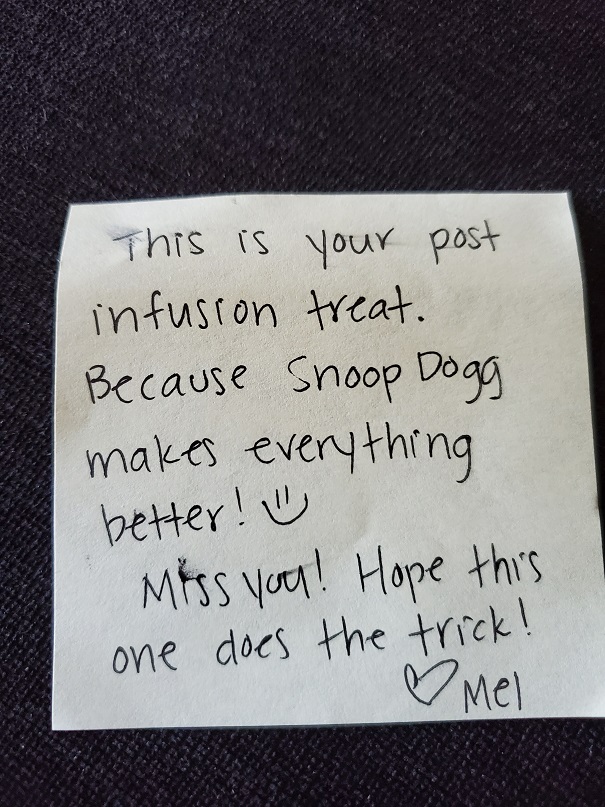 This is your post
infusion treat.
Because Snoop Dogg
makes everything
better! :)
Miss you! Hope this
one does the trick!
♡ Mel